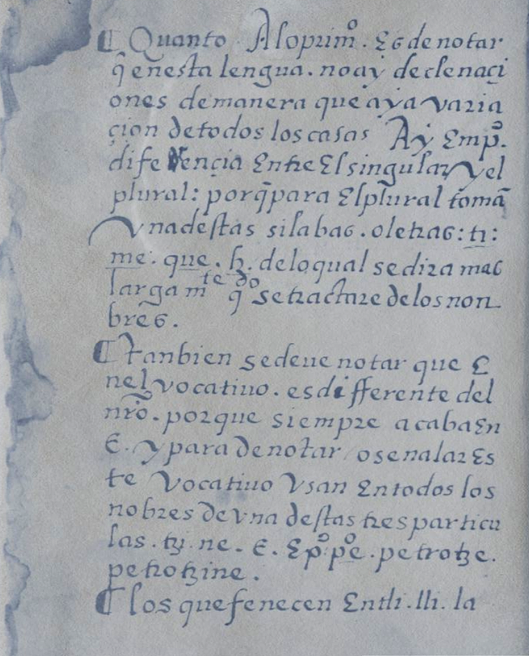 ¶ Quanto Alo prim.º Es de notar
q̃ enesta lengua. no ay declenaçi
ones de manera que aya varia
çion de todos los casas Ay Emp.º
diferençia Entre El singular y el
plural: porq̃ para El plural tomã
Vna destas silabas. o letras: tī:
me. que. h̃. delo qual se dira mas
larga mᵗᵉ q̃do se tractare de los non
bres.
¶ tanbien se deue notar que E
nel vocatiuo. es differente del
nr̃o. porque siempre acaba En
E. y para denotar o senalar Es
te vocatiuo Vsan En todos los
nobres de vna destas tres particu
las. tzi. ne. E. Ep.º pe. petrotze.
petrotzine.
¶ los que fenecen En tli. lli. la